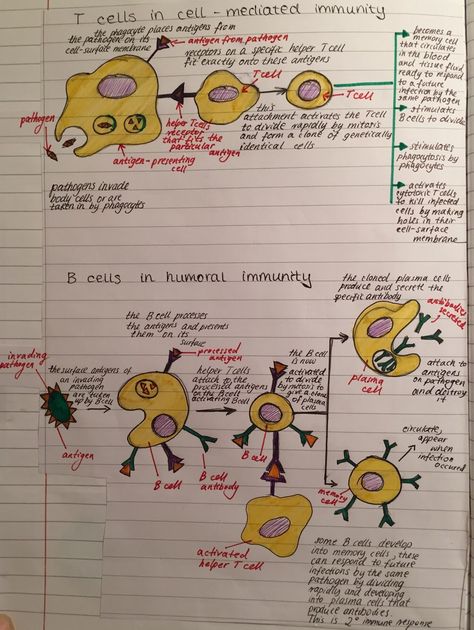 T cells in cell-mediated immunity
the phagocyte places antigens from
the pathogen on its
cell-surface membrane
antigen from pathogen
receptors on a specific helper T cell
fit exactly onto these antigens
becomes a
memory cell
that circulates
in the blood
and tissue fluid
ready to respond
to a future
infection by the
same pathogen
stimulates
B cells to divide
stimulates
phagocytosis by
phagocytes
activates
cytotoxic T cells
to kill infected
cells by making
holes in their
cell-surface
membrane
T cell
T cell
pathogen
helper T cell
receptor
that fits the
particular antigen
antigen-presenting
cell
this
attachment activates the T cell
to divide rapidly by mitosis
and form a clone of genetically
identical cells
pathogens invade
body cells or are
taken in by phagocytes
B cells in humoral immunity
the cloned plasma cells
produce and secrete the
specific antibody
antibodies
secreted
the B cell processes
the antigens and presents
them on its
surface
processed antigen
invading
pathogen
the surface antigens of
an invading
pathogen
are taken
up by B cell
helper T cells
attach to the
processed antigens
on the B cell
activating B cell
the B cell
is now
activated
to divide
by mitosis to
give a clone
of plasma
cells
plasma
cell
attach to
antigens
on pathogen
and destroy
it
antigen
B cell
B cell
antibody
B cell
memory
cell
circulate,
appear
when
infection
occurred
activated
helper T cell
some B cells develop
into memory cells, these
can respond to future
infections by the same
pathogen by dividing
rapidly and developing
into plasma cells that
produce antibodies.
This is 2° immune response